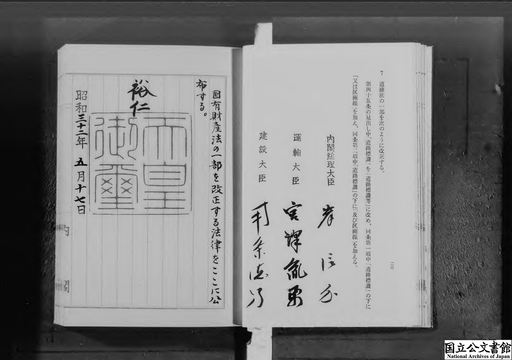 7　道路法の一部を次のように改正する。
第四十五条の見出し中「道路標識」を「道路標識等」に改め、同条第一項中「道路標識」の下に
「又は区画線」を加え、同条第二項中「道路標識」の下に「及び区画線」を加える。
内閣総理大臣　岸信介
運輸大臣　宮澤胤勇
建設大臣　南条徳男
国有財産法の一部を改正する法律をここに公
布する。
裕仁
天皇
御璽
昭和三十二年　五月十七日
国立公文書館
National Archives of Japan